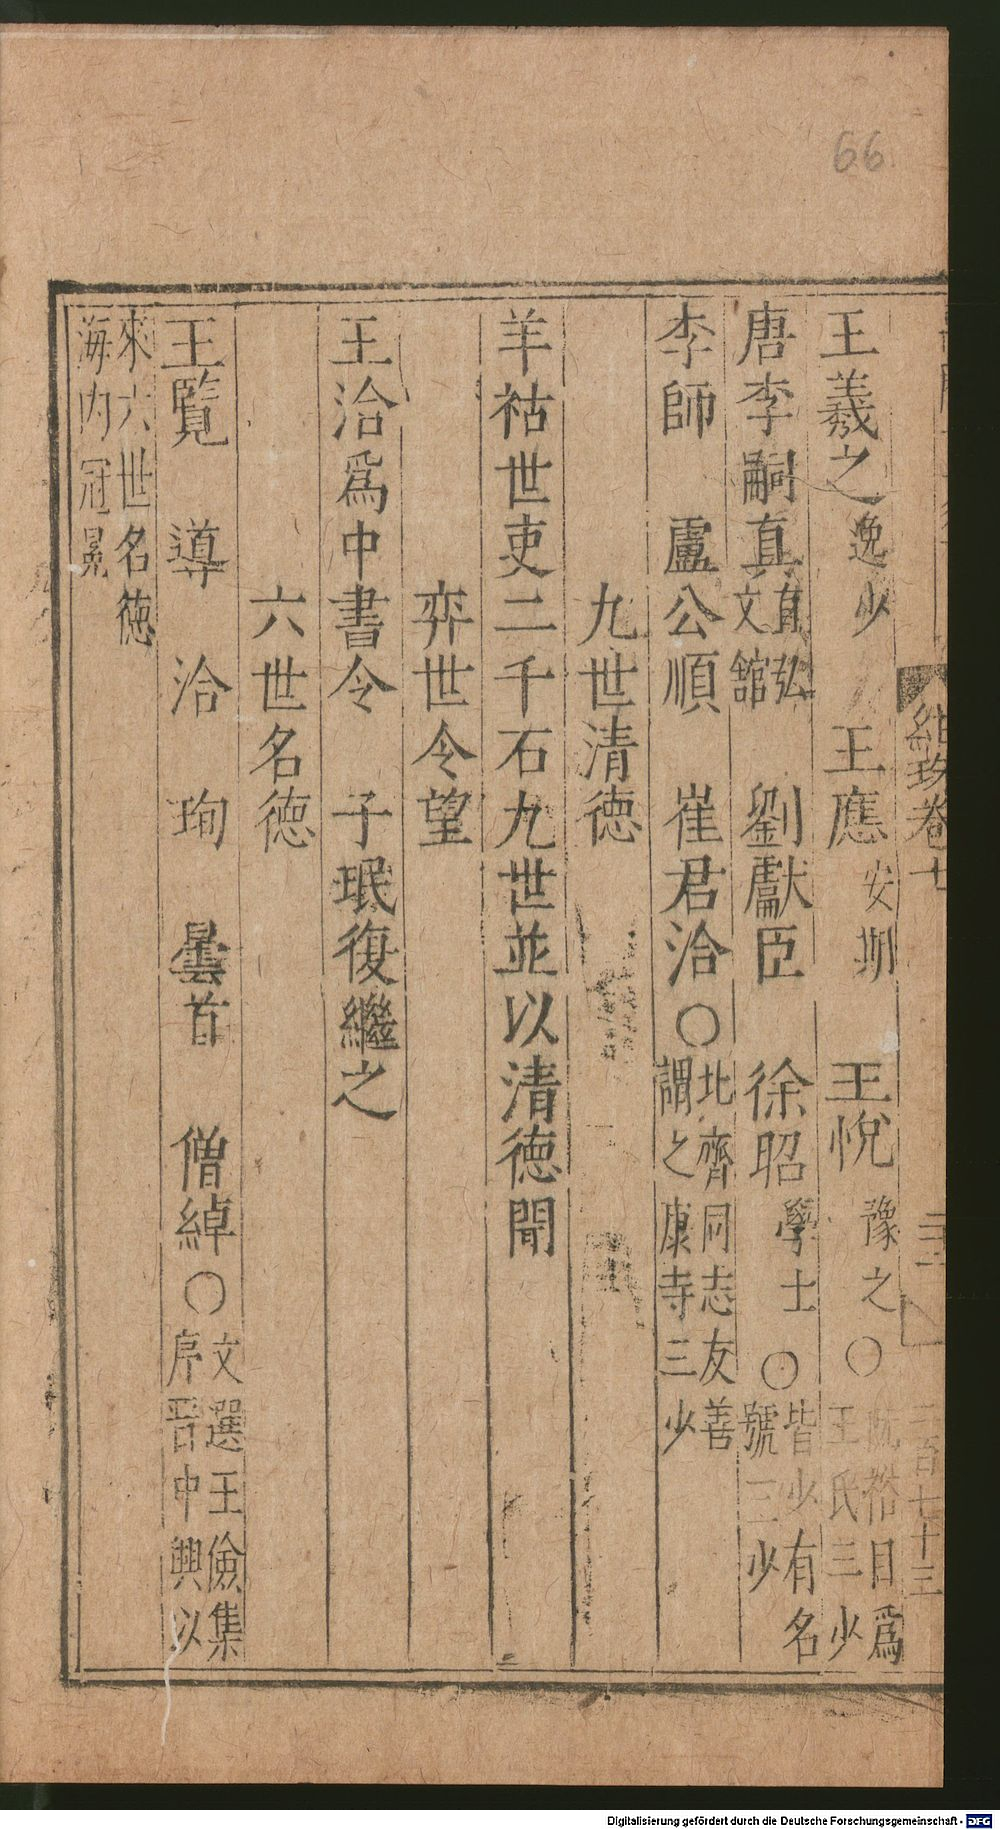 66
紺珠卷七
王羲之逸少 王應安期 王悅豫之○阮裕目爲王氏三少
唐李嗣真直弘文館 劉獻臣 徐昭學士○皆少有名號三少
李師 盧公順 崔君洽○北齊同志友善謂之康寺三少
九世清德
羊祜世吏二千石九世並以清德聞
弈世令望
王洽爲中書令 子珉復繼之
六世名德
王覽 導 洽 珣 曇首 僧綽○文選王儉集序晉中興以
來六世名德海内冠冕
Digitalisierung gefördert durch die Deutsche Forschungsgemeinschaft - DFG